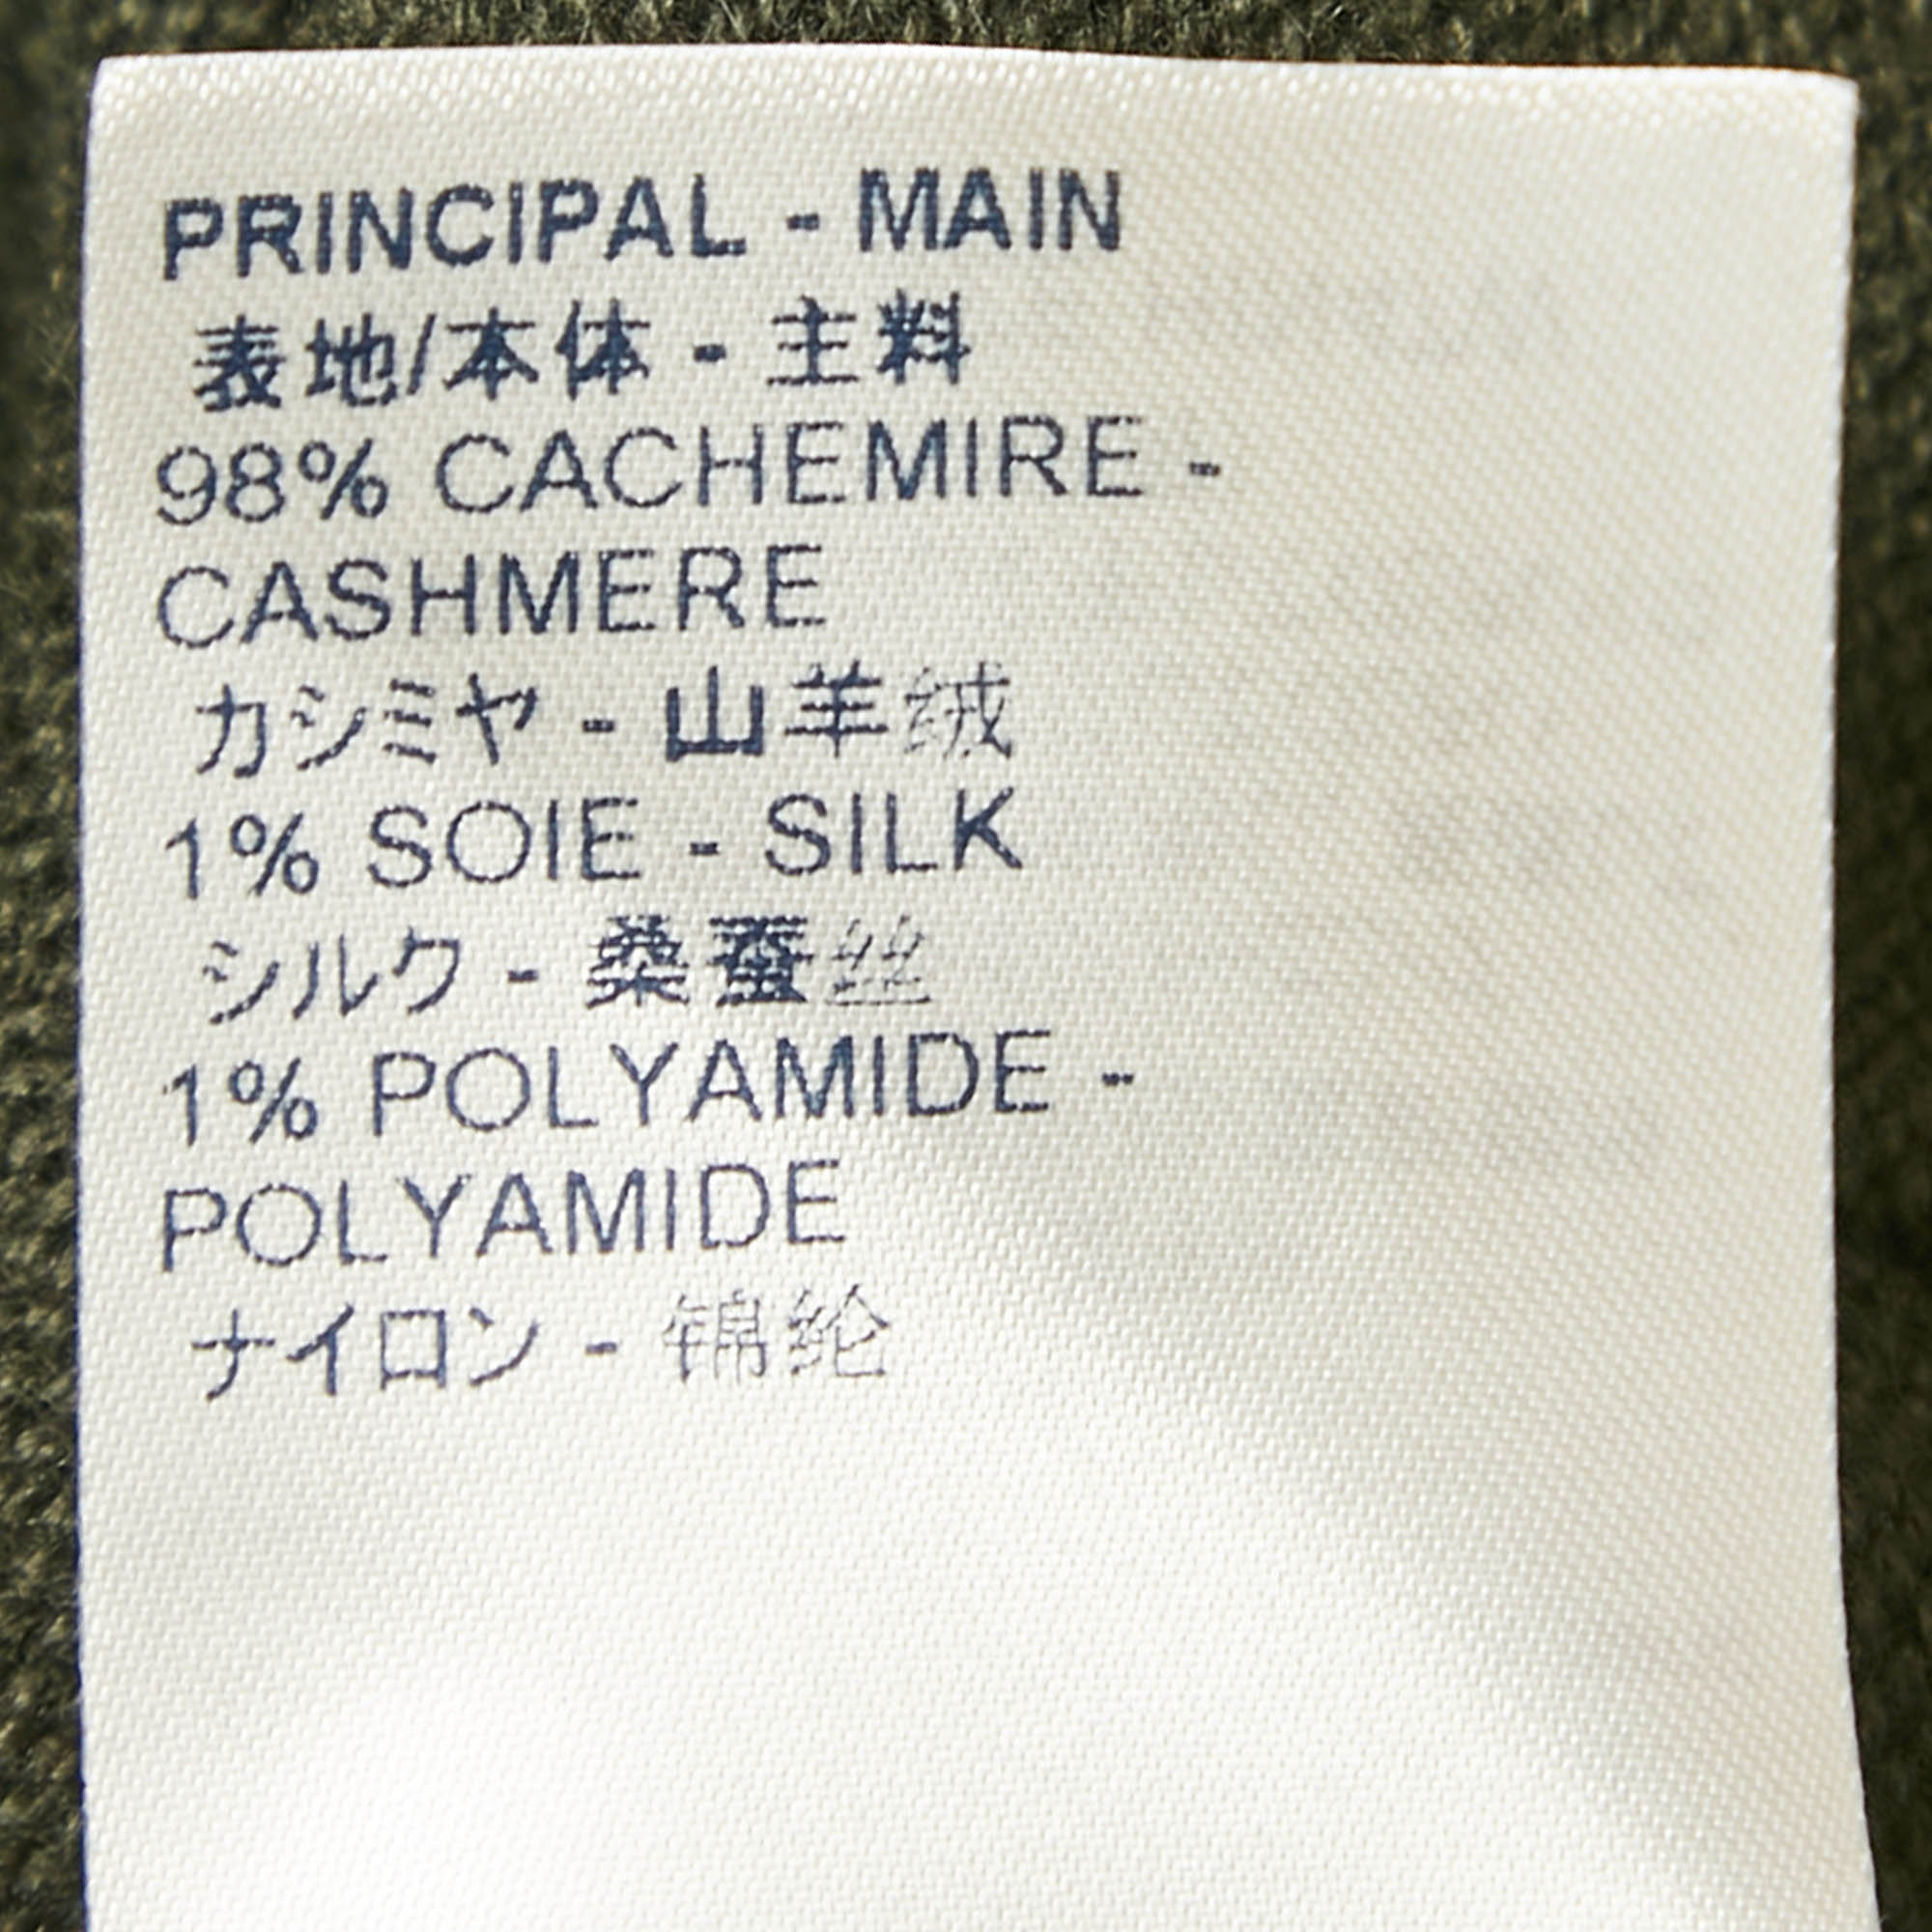 PRINCIPAL - MAIN
表地/本体 - 主料
98% CACHEMIRE -
CASHMERE
カシミヤ - 山羊绒
1% SOIE - SILK
シルク - 桑蚕丝
1% POLYAMIDE -
POLYAMIDE
ナイロン - 锦纶